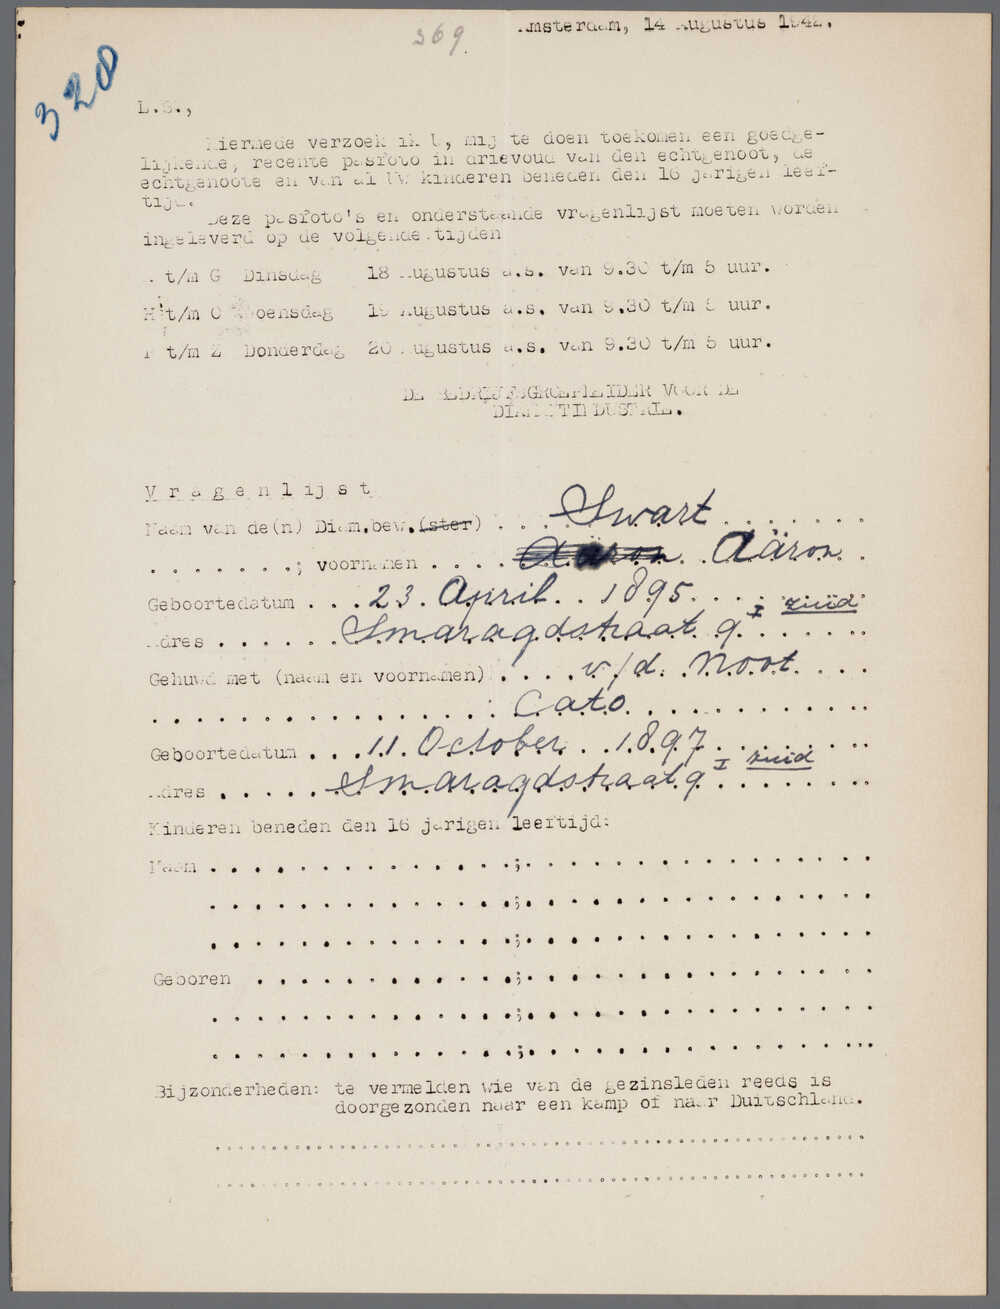 369.
Amsterdam, 14 Augustus 1942.
320
L.S.,
Hiermede verzoek ik U, mij te doen toekomen een goedge-
lijkende, recente pasfoto in drievoud van den echtgenoot, de
echtgenoote en van al Uw kinderen beneden den 16 jarigen leef-
tijd.
Deze pasfoto's en onderstaande vragenlijst moeten worden
ingeleverd op de volgende tijden
A t/m G Dinsdag 18 Augustus a.s. van 9.30 t/m 5 uur.
H t/m O Woensdag 19 Augustus a.s. van 9.30 t/m 5 uur.
P t/m Z Donderdag 20 Augustus a.s. van 9.30 t/m 5 uur.
DE BEDRIJFSGROEPLEIDER VOOR DE
DIAMANTINDUSTRIE.
Vragenlijst
Naam van de(n) Diam.bew.(ster) . . . Swart . . . . . . .
. . . . . . . ; voornamen . . . . Aäron. Aäron. .
Geboortedatum . . . 23. April. . 1895. . . . . . . .
Adres . . . . . . Smaragdstraat 9 I zuid . . . . . .
Gehuwd met (naam en voornamen) . . . . v/d. Noot. . . .
. . . . . . . . . . . . . . . Cato. . . . . . . . . . .
Geboortedatum . . . 11. October. . 1897. . . . . . . .
Adres . . . . . . Smaragdstraat 9 I zuid . . . . . .
Kinderen beneden den 16 jarigen leeftijd:
Naam . . . . . . . . . . . . . . ; . . . . . . . . . . . . . . .
. . . . . . . . . . . . . . ; . . . . . . . . . . . . . . .
. . . . . . . . . . . . . . ; . . . . . . . . . . . . . . .
Geboren . . . . . . . . . . . . ; . . . . . . . . . . . . . . .
. . . . . . . . . . . . . . ; . . . . . . . . . . . . . . .
. . . . . . . . . . . . . . ; . . . . . . . . . . . . . . .
Bijzonderheden: te vermelden wie van de gezinsleden reeds is
doorgezonden naar een kamp of naar Duitschland.